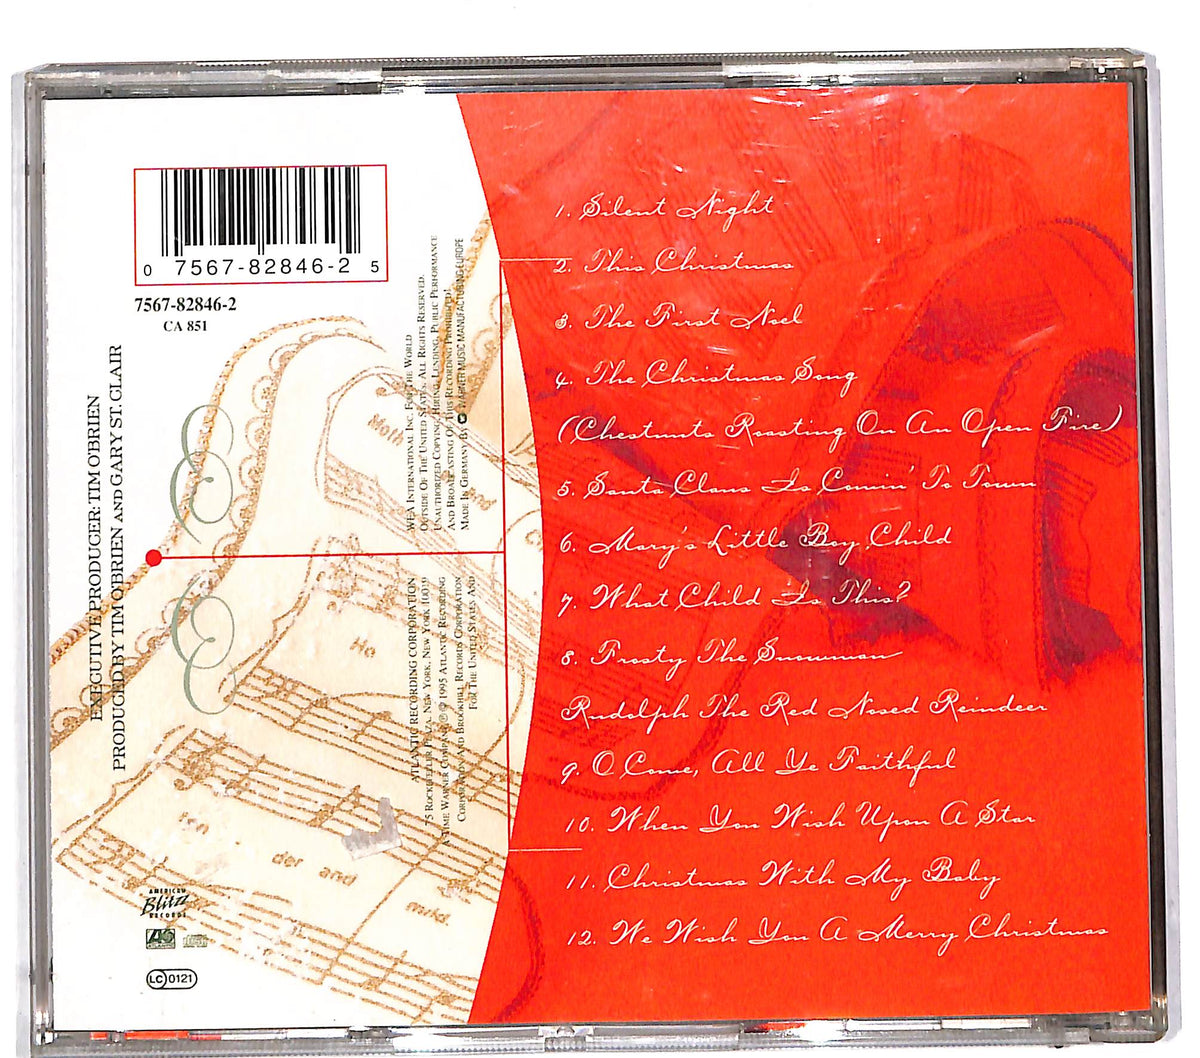 0 7567-82846-2 5
7567-82846-2
CA 851
EXECUTIVE PRODUCER: TIM O'BRIEN
PRODUCED BY TIM O'BRIEN AND GARY ST. CLAIR
WEA INTERNATIONAL INC. FOR THE WORLD
OUTSIDE OF THE UNITED STATES. ALL RIGHTS RESERVED.
UNAUTHORIZED COPYING, HIRING, LENDING, PUBLIC PERFORMANCE
AND BROADCASTING OF THIS RECORDING PROHIBITED!
MADE IN GERMANY BY WARNER MUSIC MANUFACTURING EUROPE
ATLANTIC RECORDING CORPORATION
75 ROCKEFELLER PLAZA, NEW YORK, NEW YORK 10019
A TIME WARNER COMPANY ℗© 1995 ATLANTIC RECORDING
CORPORATION AND BROOKHILL RECORDS CORPORATION
FOR THE UNITED STATES AND
1. Silent Night
2. This Christmas
3. The First Noel
4. The Christmas Song
(Chestnuts Roasting On An Open Fire)
5. Santa Claus Is Comin' To Town
6. Mary's Little Boy Child
7. What Child Is This?
8. Frosty The Snowman
Rudolph The Red Nosed Reindeer
9. O Come, All Ye Faithful
10. When You Wish Upon A Star
11. Christmas With My Baby
12. We Wish You A Merry Christmas
Moth
and
Ho
ten
der and
mild
AMERICAN
Blitz
RECORDS
ATLANTIC
LC 0121